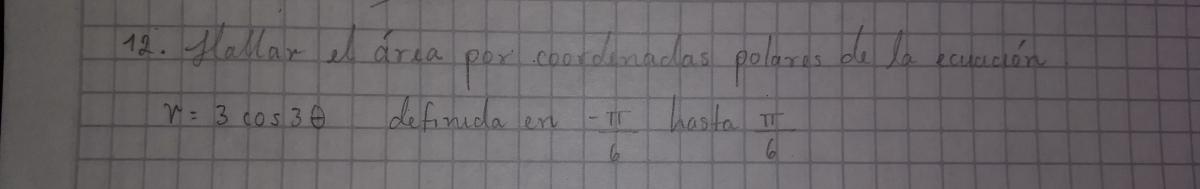 12. Hallar el área por coordenadas polares de la ecuación
r = 3 cos 3θ definida en -π/6 hasta π/6